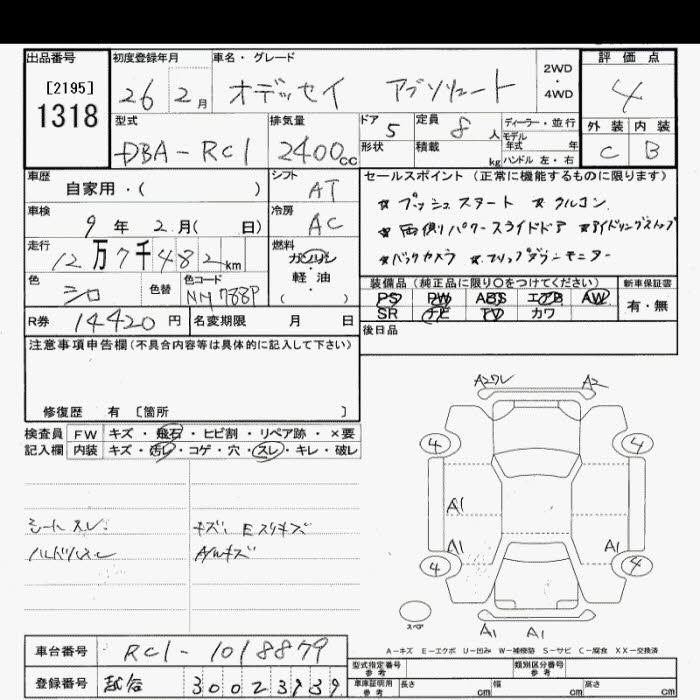 出品番号 初度登録年月 車名・グレード 評価点
[2195]
1318
26 2月 オデッセイ アブソリュート 2WD・4WD 4
型式 排気量 ドア 定員 ディーラー・並行 外装 内装
DBA-RC1 2400cc 5 8人 モデル年式 年 C B
形状 積載 kg ハンドル 左・右
車歴 シフト セールスポイント(正常に機能するものに限ります)
自家用・( ) AT ☆プッシュスタート ☆クルコン
車検 冷房
9年 2月( 日) AC ☆両側パワースライドドア ☆アイドリングストップ
走行 燃料
12万7千482km ガソリン ☆バックカメラ ☆フリップダウンモニター
軽・油
( )
色 色替 色コード 装備品(純正品に限り〇をつけてください) 新車保証書
シロ NH788P PS PW ABS エアB AW 有・無
SR ナビ TV カワ
R券 14420円 名変期限 月 日 後日品
注意事項申告欄(不具合内容等は具体的に記入して下さい)
修復歴 有 〔箇所 〕
検査員 FW キズ・飛石・ヒビ割・リペア跡・×要
記入欄 内装 キズ・汚レ・コゲ・穴・スレ・キレ・破レ
シートスレ キズ、Eスリキズ
ハンドルスレ A/Wキズ
A2ワレ A2
4 4
A1
A1 A1
4 4
スペア
A1 A1
A-キズ E-エクボ U-凹み W-補修跡 S-サビ C-腐食 XX-交換済
車台番号 RC1-1018879
型式指定番号 参考 類別区分番号 参考
登録番号 300 2939
車庫証明用 参考 長さ cm 幅 cm 高さ cm